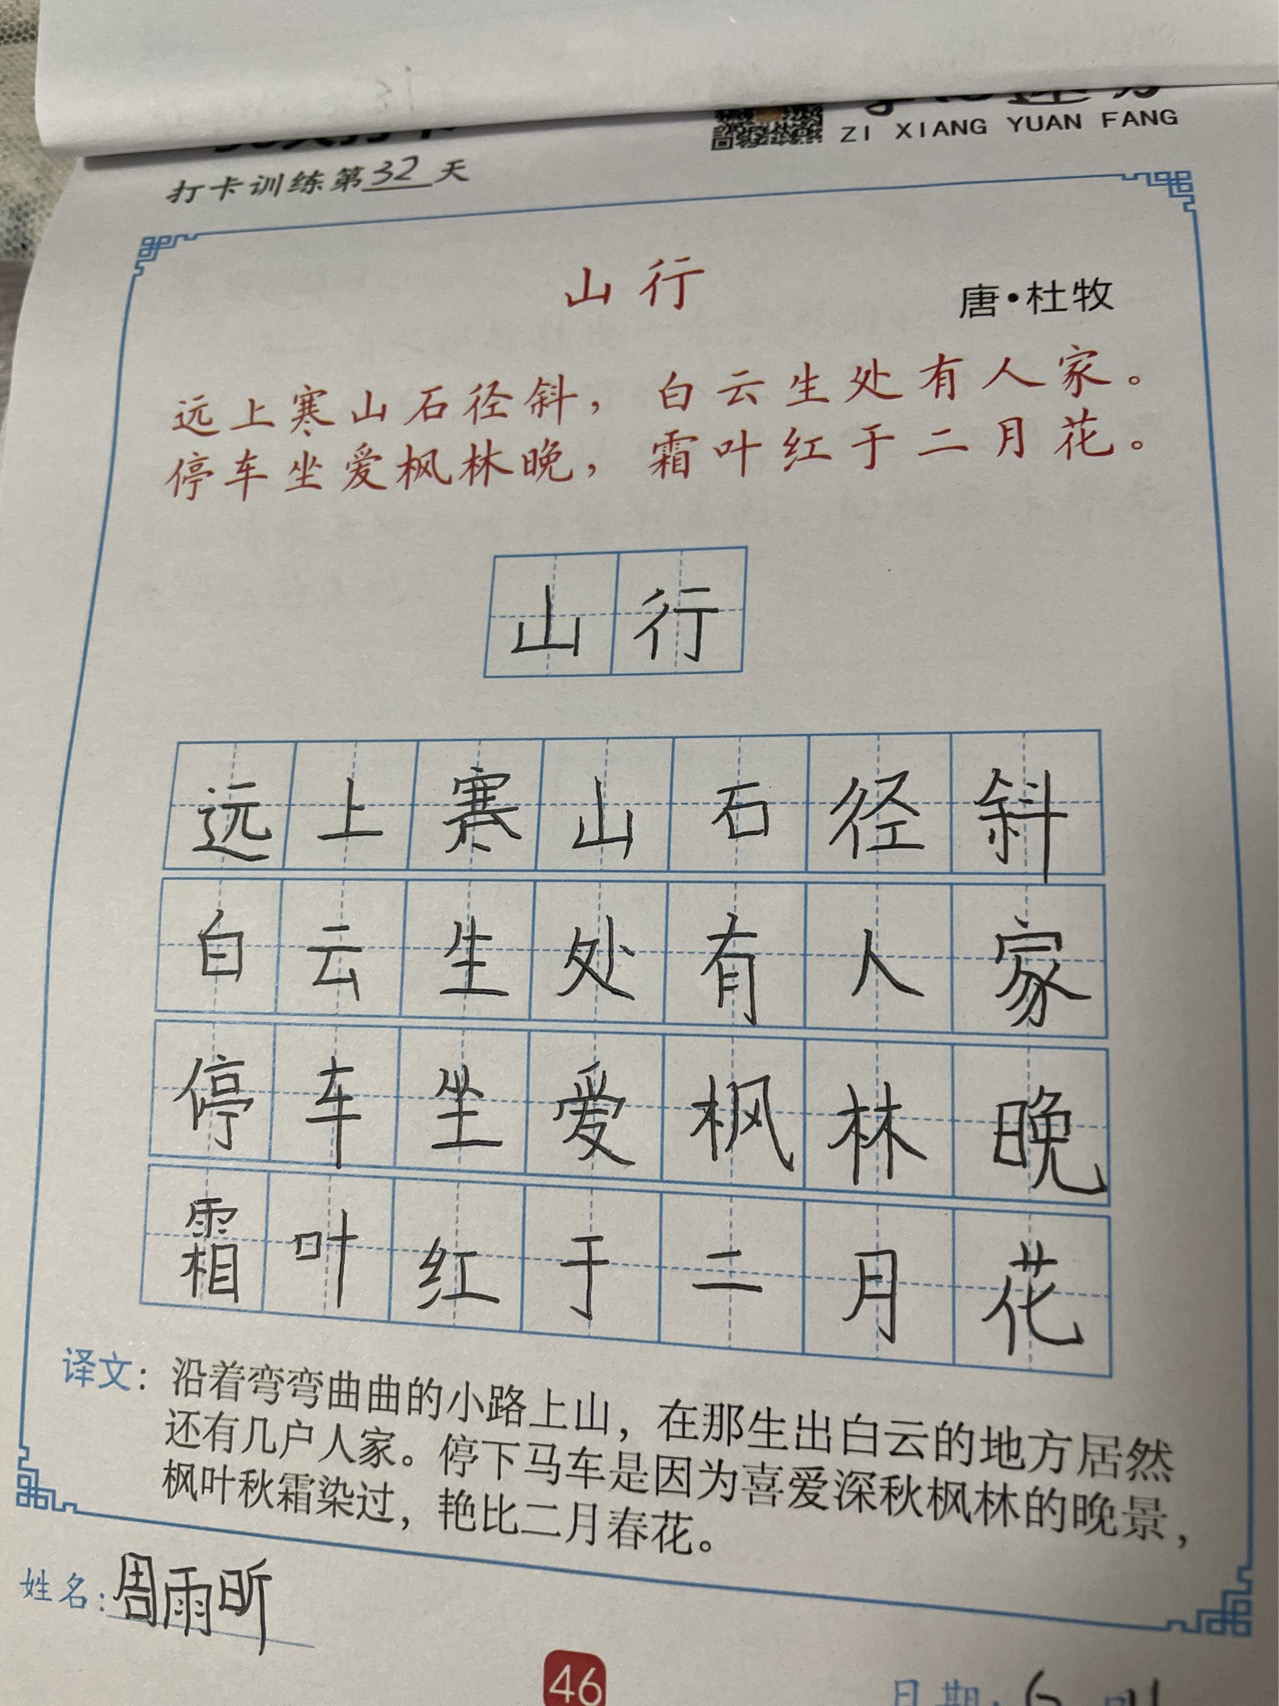 ZI XIANG YUAN FANG
打卡训练第32天
山行
唐·杜牧
远上寒山石径斜，白云生处有人家。
停车坐爱枫林晚，霜叶红于二月花。
山行
远上寒山石径斜
白云生处有人家
停车坐爱枫林晚
霜叶红于二月花
译文：沿着弯弯曲曲的小路上山，在那生出白云的地方居然
还有几户人家。停下马车是因为喜爱深秋枫林的晚景，
枫叶秋霜染过，艳比二月春花。
姓名：周雨昕
46
日期：